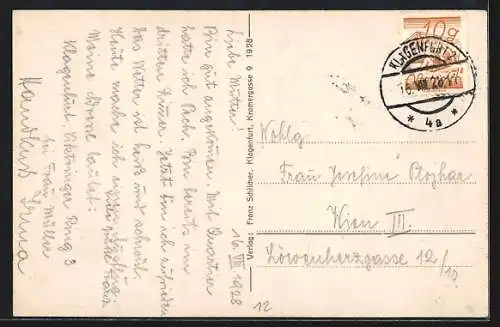 16. VII 1928
Liebe Mutter!
Bin gut angekommen. Mit Quartier
hatte ich Pech. Bin bereits im
dritten Zimmer. Jetzt bin ich zufrieden
Das Wetter ist heiß und schwül.
Heute mache ich einen
Meine Adresse lautet:
Klagenfurt Viktringer Ring 3
bei Frau Müller
Verlag: Franz Schilcher, Klagenfurt, Kramergasse 9 1928
10g
KLAGENFURT 2
16. VII 28
* 4a *
Wohlg
Frau Josefine Plojhar
Wien III.
Löwenherzgasse 12/10
12